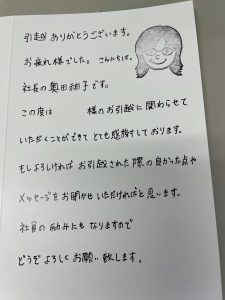 引越ありがとうございます。
お疲れ様でした。こんにちは。
社長の奥田 子です。
この度は 様のお引越に関わらせて
いただくことができてとても感謝しております。
もしよろしければ お引越された際の良かった点や
メッセージをお聞かせいただければと思います。
社員の励みにもなりますので
どうぞよろしくお願い致します。